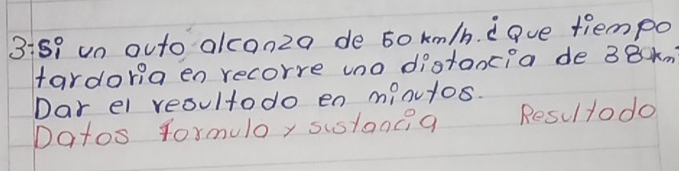 3: Si un auto alcanza de 50 km/h. ¿Que tiempo
tardaria en recorre una distancia de 38 km
Dar el resultado en minutos.
Datos formula y sustancia Resultado